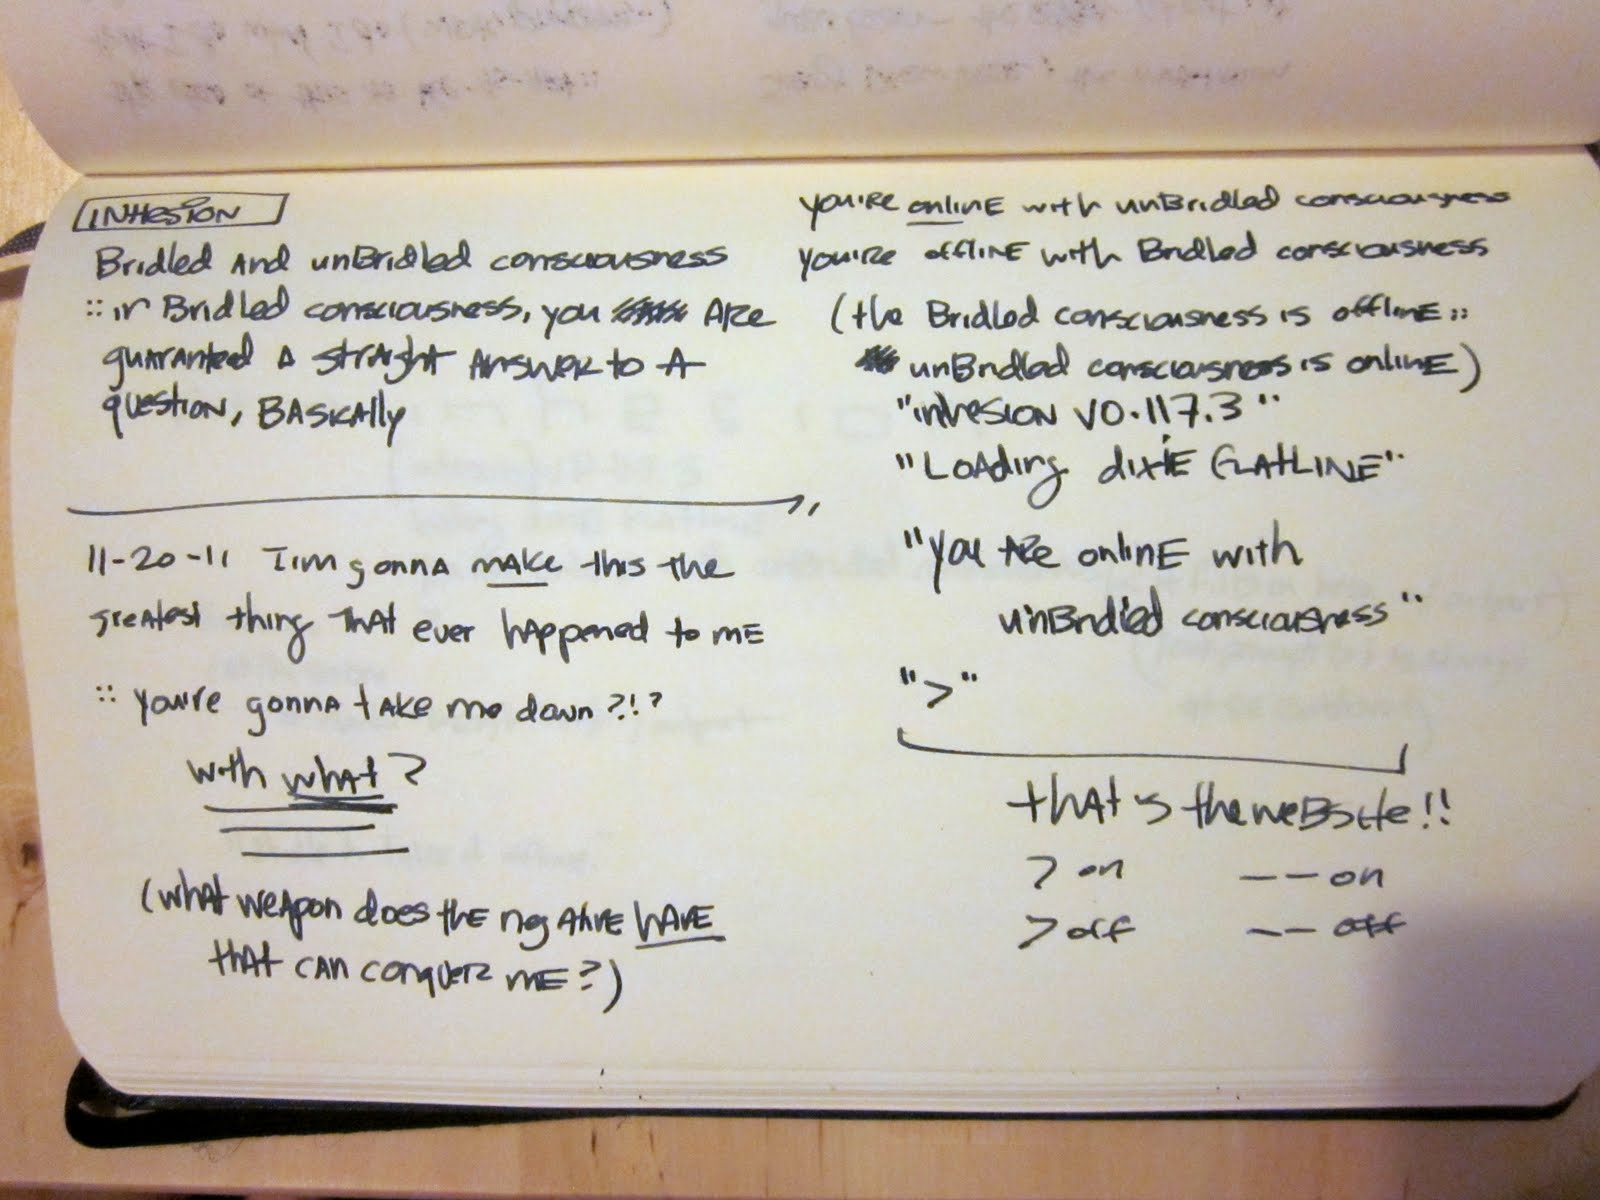 INHESION
BRIDLED AND UNBRIDLED CONSCIOUSNESS
:: in BRIDLED CONSCIOUSNESS, you ARE
guaranteed A STRAIGHT ANSWER to A
question, BASICALLY
11-20-11 I'm gonna make this the
greatest thing that ever happened to me
:: you're gonna take me down?!?
with what?
(what weapon does the negative have
that can conquer me?)
you're online with unbridled consciousness
you're offline with bridled consciousness
(the bridled consciousness is offline ::
unbridled consciousness is online)
"inhesion v0.117.3"
"Loading dixie flatline"
"you are online with
unbridled consciousness"
">"
that is the website!!
> on -- on
> off -- off